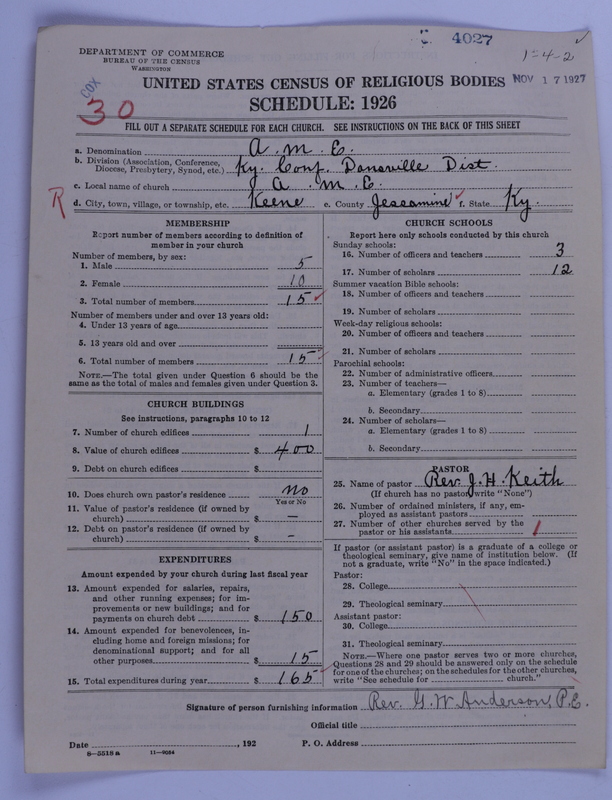 DEPARTMENT OF COMMERCE
BUREAU OF THE CENSUS
WASHINGTON
4027
1-4-2
COX
30
UNITED STATES CENSUS OF RELIGIOUS BODIES
NOV 17 1927
SCHEDULE: 1926
FILL OUT A SEPARATE SCHEDULE FOR EACH CHURCH. SEE INSTRUCTIONS ON THE BACK OF THIS SHEET
a. Denomination A. M. E.
b. Division (Association, Conference, Diocese, Presbytery, Synod, etc.) Ky. Conf. Dansville Dist.
c. Local name of church A. M. E.
R d. City, town, village, or township, etc. Keene e. County Jessamine f. State Ky.
MEMBERSHIP
Report number of members according to definition of
member in your church
Number of members, by sex:
1. Male 5
2. Female 10
3. Total number of members 15
Number of members under and over 13 years old:
4. Under 13 years of age
5. 13 years old and over
6. Total number of members 15
NOTE.—The total given under Question 6 should be the
same as the total of males and females given under Question 3.
CHURCH BUILDINGS
See instructions, paragraphs 10 to 12
7. Number of church edifices 1
8. Value of church edifices $ 400
9. Debt on church edifices $
10. Does church own pastor's residence No
Yes or No
11. Value of pastor's residence (if owned by
church) $ —
12. Debt on pastor's residence (if owned by
church) $ -
EXPENDITURES
Amount expended by your church during last fiscal year
13. Amount expended for salaries, repairs,
and other running expenses; for im-
provements or new buildings; and for
payments on church debt $ 150
14. Amount expended for benevolences, in-
cluding home and foreign missions; for
denominational support; and for all
other purposes $ 15
15. Total expenditures during year $ 165
CHURCH SCHOOLS
Report here only schools conducted by this church
Sunday schools:
16. Number of officers and teachers 3
17. Number of scholars 12
Summer vacation Bible schools:
18. Number of officers and teachers
19. Number of scholars
Week-day religious schools:
20. Number of officers and teachers
21. Number of scholars
Parochial schools:
22. Number of administrative officers
23. Number of teachers—
a. Elementary (grades 1 to 8)
b. Secondary
24. Number of scholars—
a. Elementary (grades 1 to 8)
b. Secondary
PASTOR
25. Name of pastor Rev. J. H. Keith
(If church has no pastor, write "None")
26. Number of ordained ministers, if any, em-
ployed as assistant pastors
27. Number of other churches served by the
pastor or his assistants 1
If pastor (or assistant pastor) is a graduate of a college or
theological seminary, give name of institution below. (If
not a graduate, write "No" in the space indicated.)
Pastor:
28. College
29. Theological seminary
Assistant pastor:
30. College
31. Theological seminary
NOTE.—Where one pastor serves two or more churches,
Questions 28 and 29 should be answered only on the schedule
for one of the churches; on the schedules for the other churches,
write "See schedule for church."
Signature of person furnishing information Rev. G. W. Anderson, P.E.
Official title
Date , 192 P. O. Address
8—5518a 11—9034